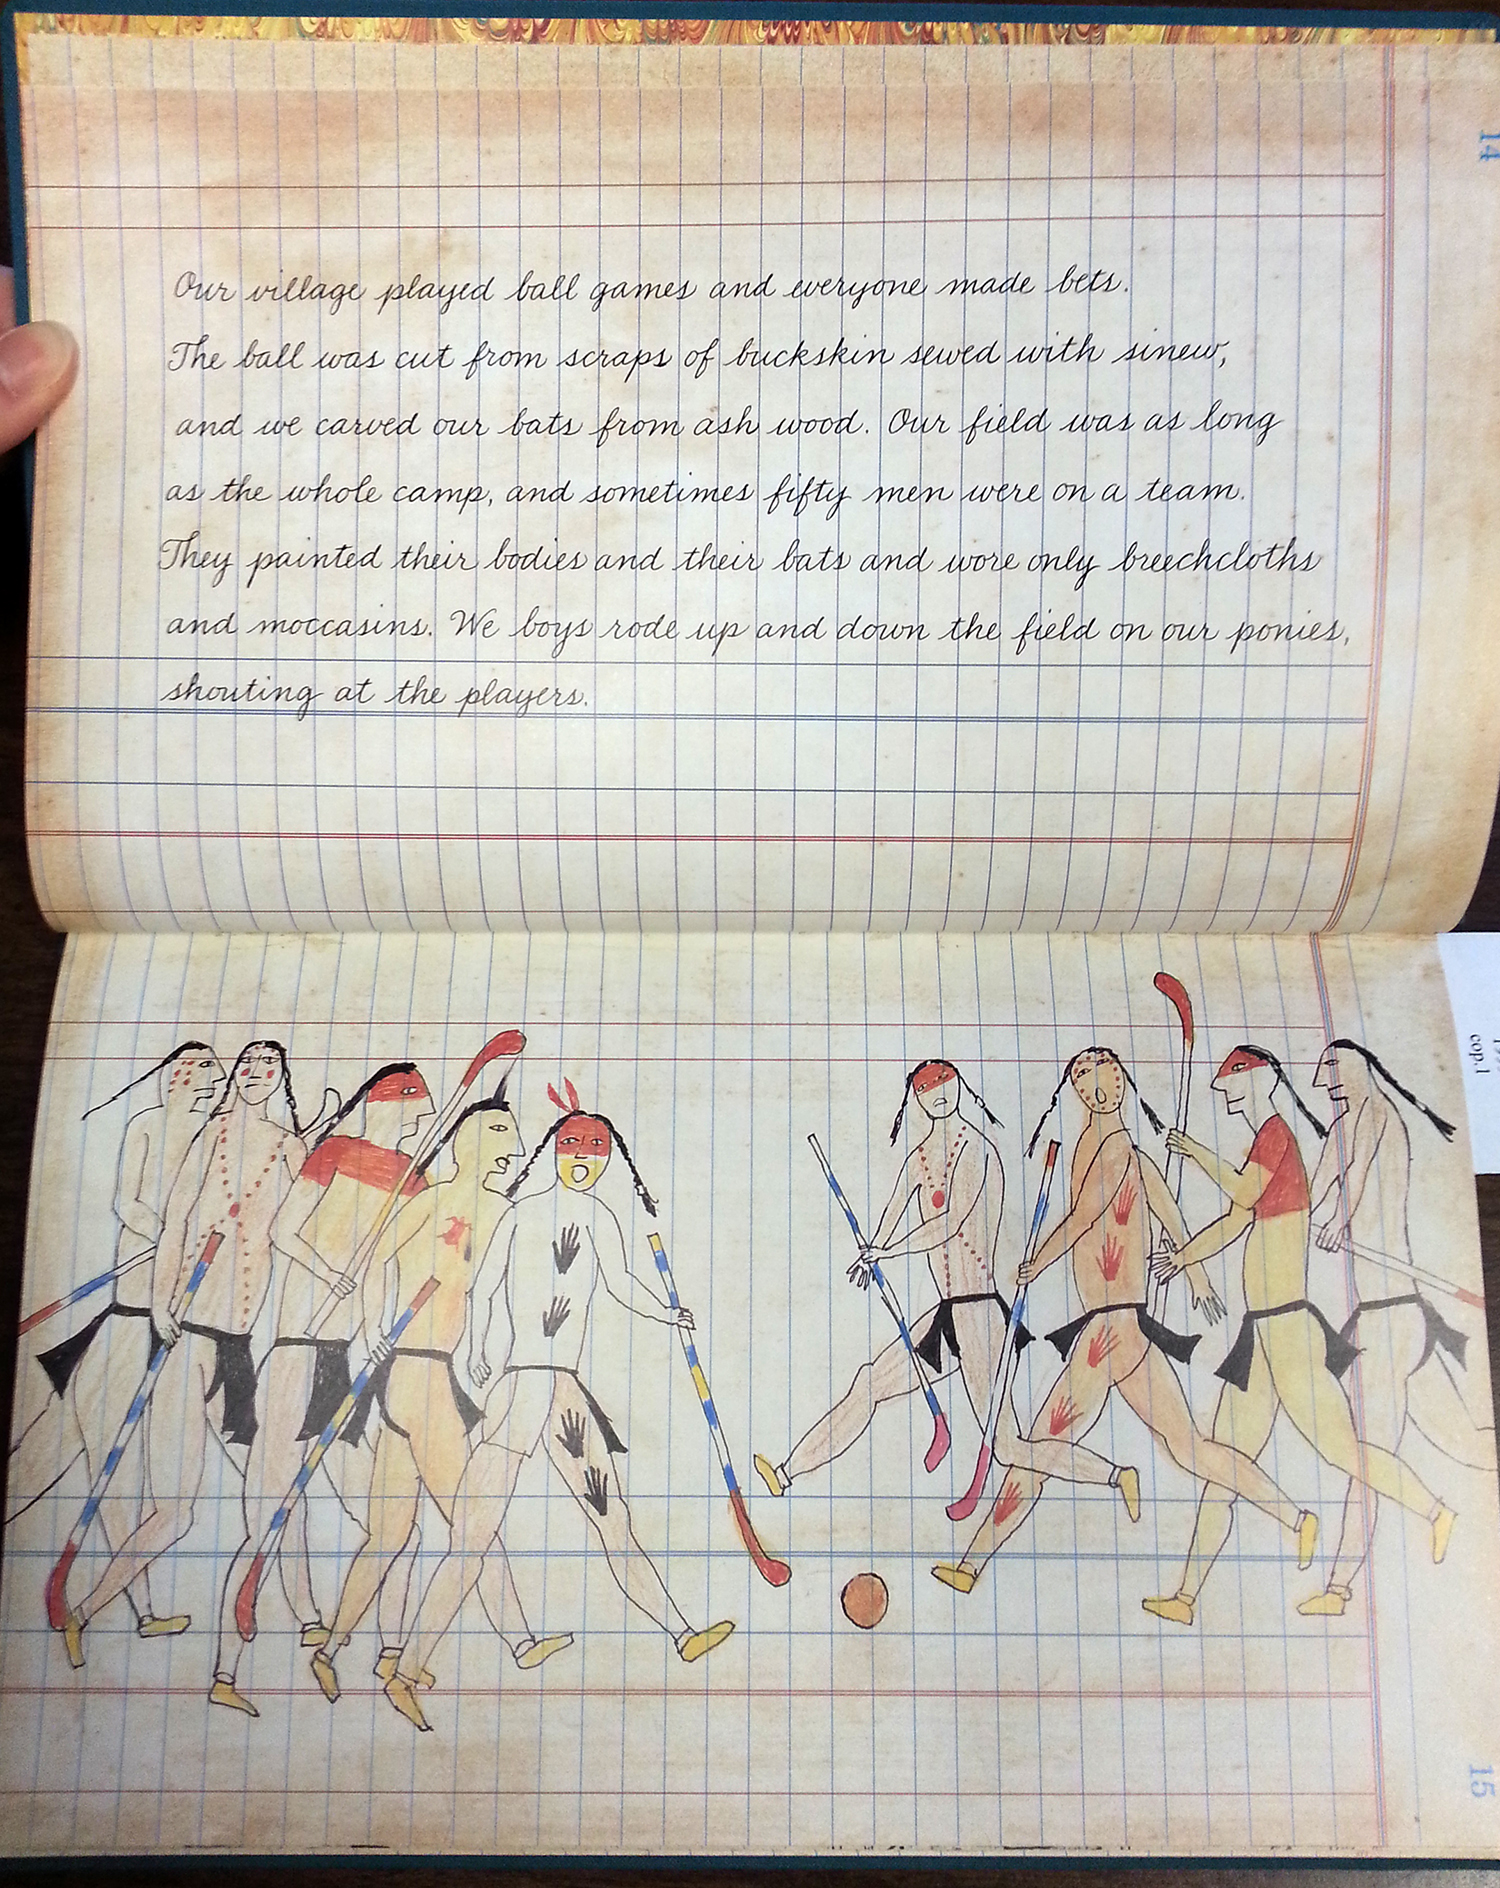 14
Our village played ball games and everyone made bets.
The ball was cut from scraps of buckskin sewed with sinew,
and we carved our bats from ash wood. Our field was as long
as the whole camp, and sometimes fifty men were on a team.
They painted their bodies and their bats and wore only breechcloths
and moccasins. We boys rode up and down the field on our ponies,
shouting at the players.
cop.1
15